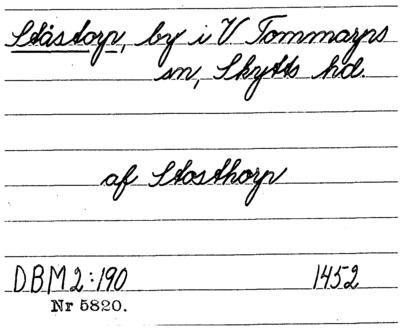 Ståstorp, by i V Tommarps
sn, Skytts hd.
af Stosthorp
DBM 2:190 1452
Nr 5820.